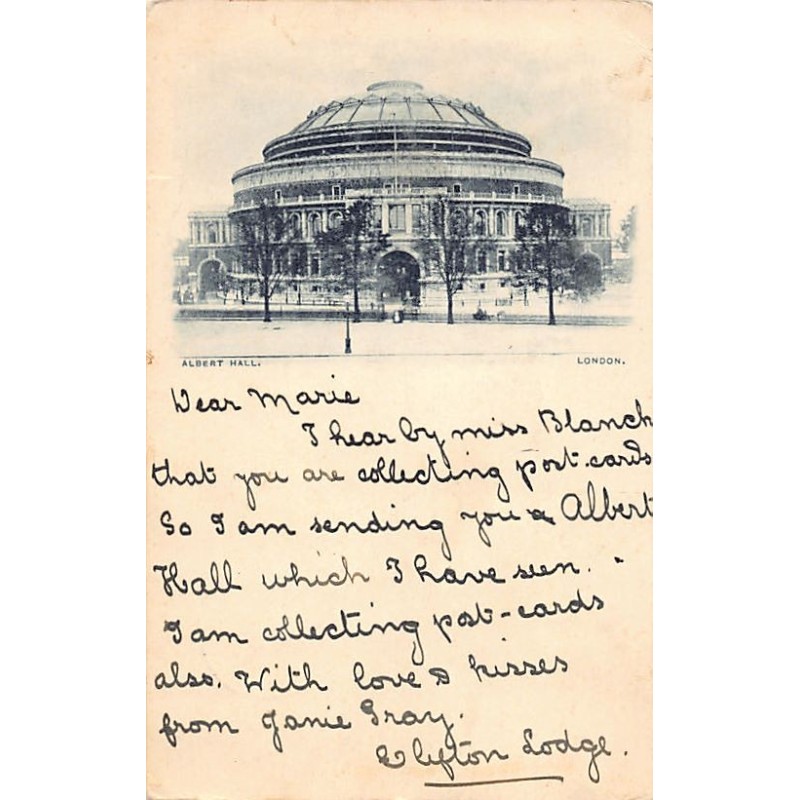 ALBERT HALL. LONDON.
Dear Marie
I hear by miss Blanch
that you are collecting post-cards
So I am sending you a Albert
Hall which I have seen.
I am collecting post-cards
also. With love & kisses
from Janie Gray.
Clifton Lodge.